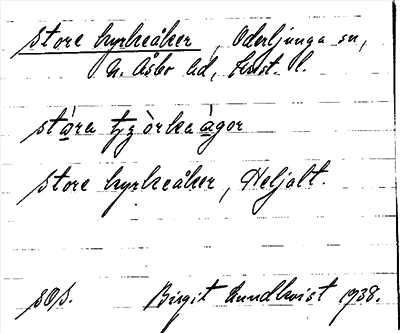 store kyrkeåker, Oderljunga sn,
N. Åsbo hd, Krist. l.
stɑ̀ra tʒòrka ɑ̀gor
store kyrkeåker, Heljalt.
sOs.
Birgit Lundkvist 1938.